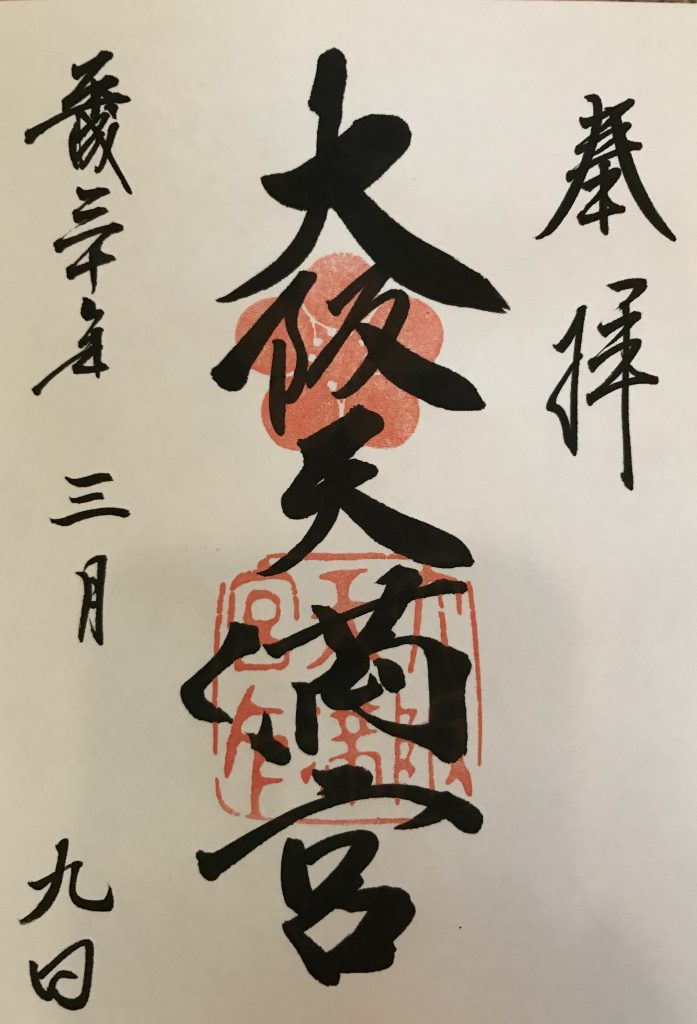 奉拝
大阪天満宮
平成三十年 三月 九日